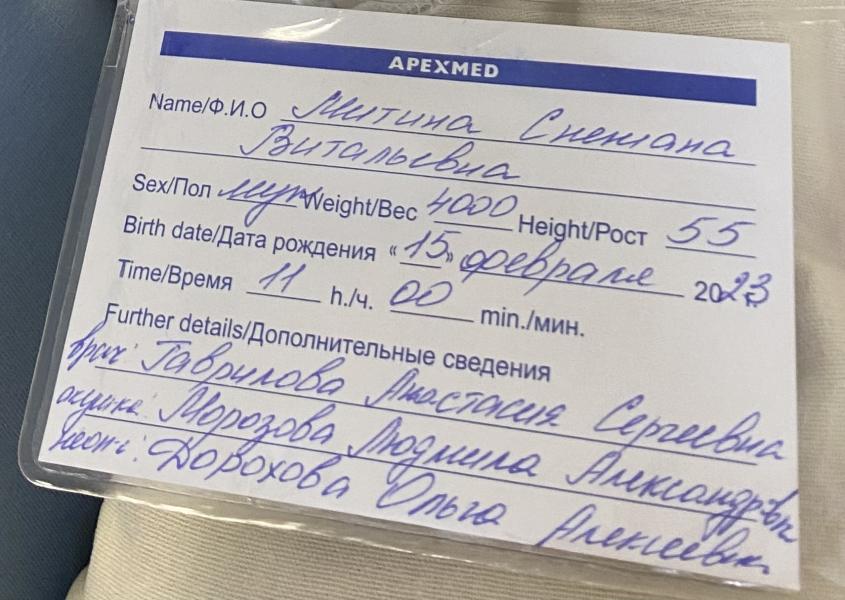 APEXMED
Name/Ф.И.О Митина Снежана
Витальевна
Sex/Пол муж Weight/Вес 4000 Height/Рост 55
Birth date/Дата рождения «15» февраля 2023 г.
Time/Время 11 h./ч. 00 min./мин.
Further details/Дополнительные сведения
врач: Гаврилова Анастасия Сергеевна
акушерка: Морозова Людмила Александровна
неон-г: Дорохова Ольга Алексеевна